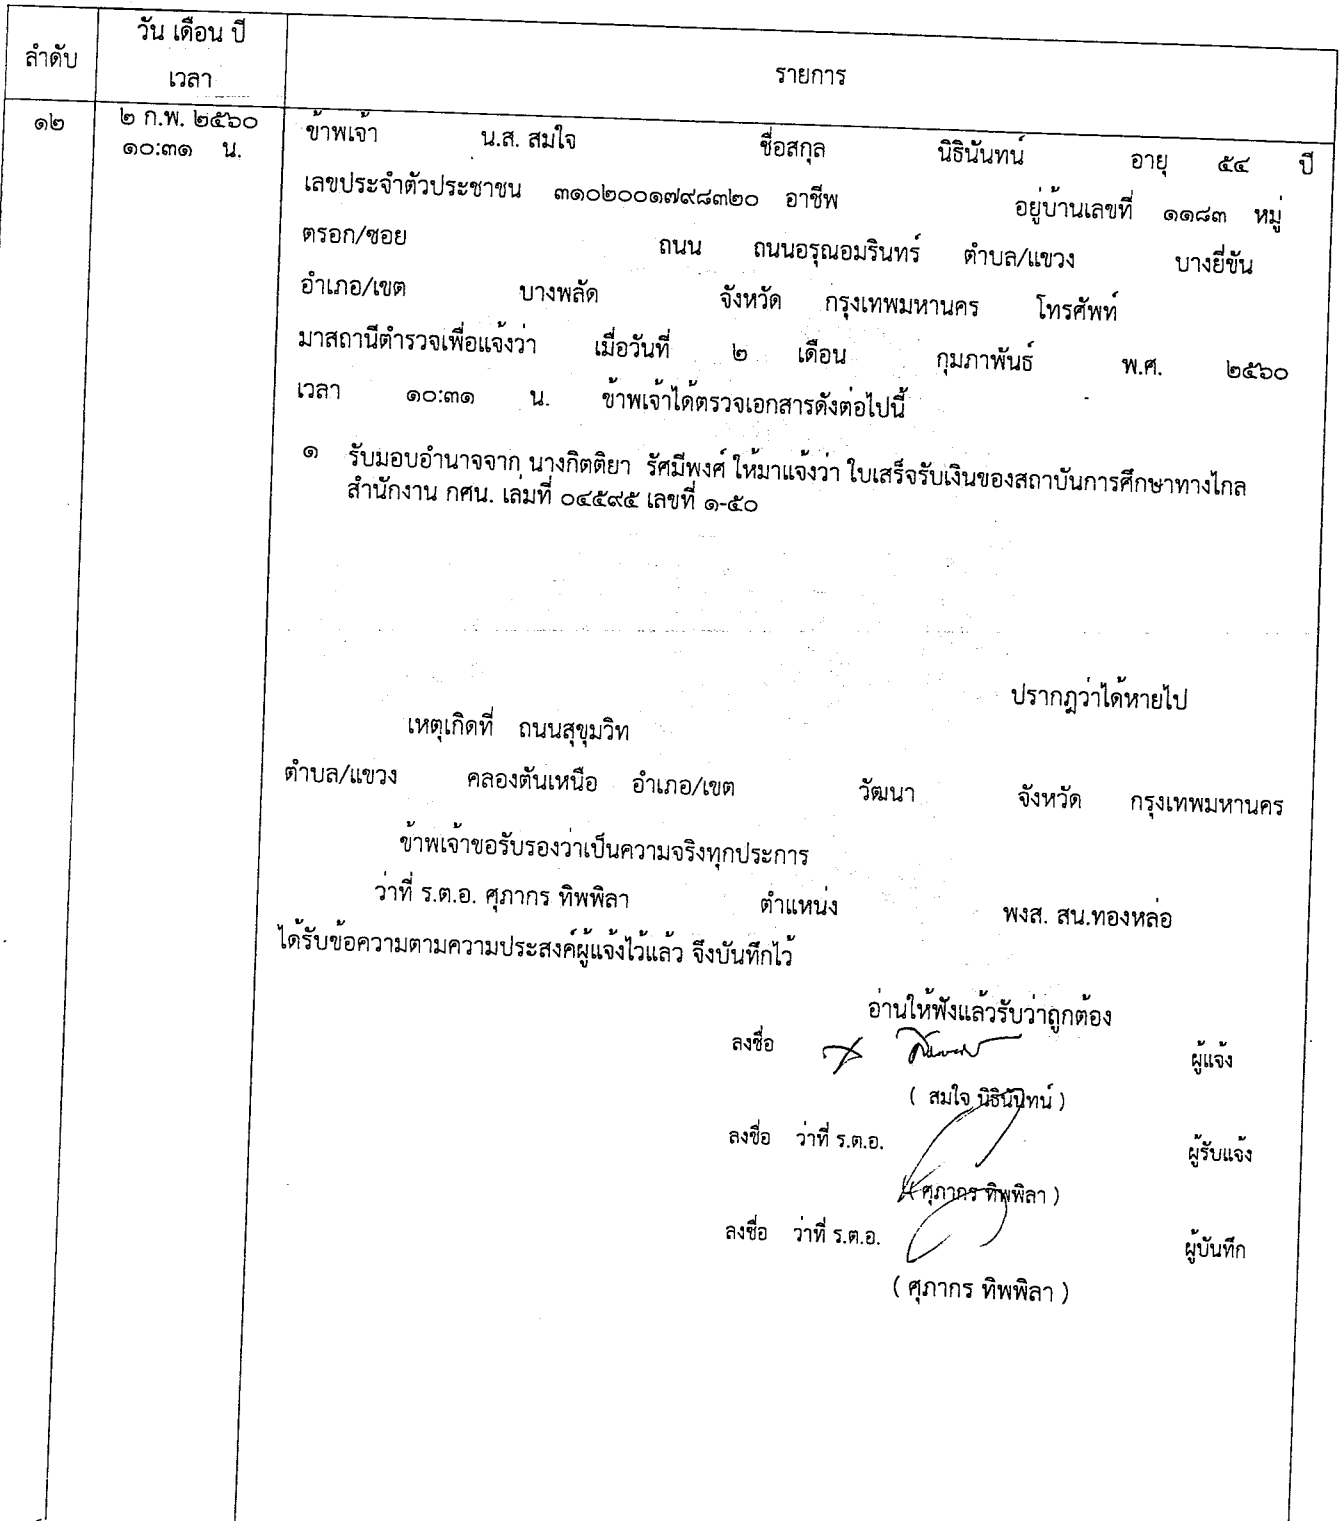 ลำดับ วัน เดือน ปี เวลา รายการ
๑๒ ๒ ก.พ. ๒๕๖๐ ๑๐:๓๑ น.
ข้าพเจ้า น.ส. สมใจ ชื่อสกุล นิธินันทน์ อายุ ๕๔ ปี
เลขประจำตัวประชาชน ๓๑๐๒๐๐๑๗๙๘๓๒๐ อาชีพ อยู่บ้านเลขที่ ๑๑๘๓ หมู่
ตรอก/ซอย ถนน ถนนอรุณอมรินทร์ ตำบล/แขวง บางยี่ขัน
อำเภอ/เขต บางพลัด จังหวัด กรุงเทพมหานคร โทรศัพท์
มาสถานีตำรวจเพื่อแจ้งว่า เมื่อวันที่ ๒ เดือน กุมภาพันธ์ พ.ศ. ๒๕๖๐
เวลา ๑๐:๓๑ น. ข้าพเจ้าได้ตรวจเอกสารดังต่อไปนี้
๑ รับมอบอำนาจจาก นางกิตติยา รัศมีพงศ์ ให้มาแจ้งว่า ใบเสร็จรับเงินของสถาบันการศึกษาทางไกล
สำนักงาน กศน. เล่มที่ ๐๔๕๙๕ เลขที่ ๑-๕๐
ปรากฎว่าได้หายไป
เหตุเกิดที่ ถนนสุขุมวิท
ตำบล/แขวง คลองตันเหนือ อำเภอ/เขต วัฒนา จังหวัด กรุงเทพมหานคร
ข้าพเจ้าขอรับรองว่าเป็นความจริงทุกประการ
ว่าที่ ร.ต.อ. ศุภากร ทิพพิลา ตำแหน่ง พงส. สน.ทองหล่อ
ได้รับข้อความตามความประสงค์ผู้แจ้งไว้แล้ว จึงบันทึกไว้
อ่านให้ฟังแล้วรับว่าถูกต้อง
ลงชื่อ ผู้แจ้ง
( สมใจ นิธินันทน์ )
ลงชื่อ ว่าที่ ร.ต.อ. ผู้รับแจ้ง
( ศุภากร ทิพพิลา )
ลงชื่อ ว่าที่ ร.ต.อ. ผู้บันทึก
( ศุภากร ทิพพิลา )